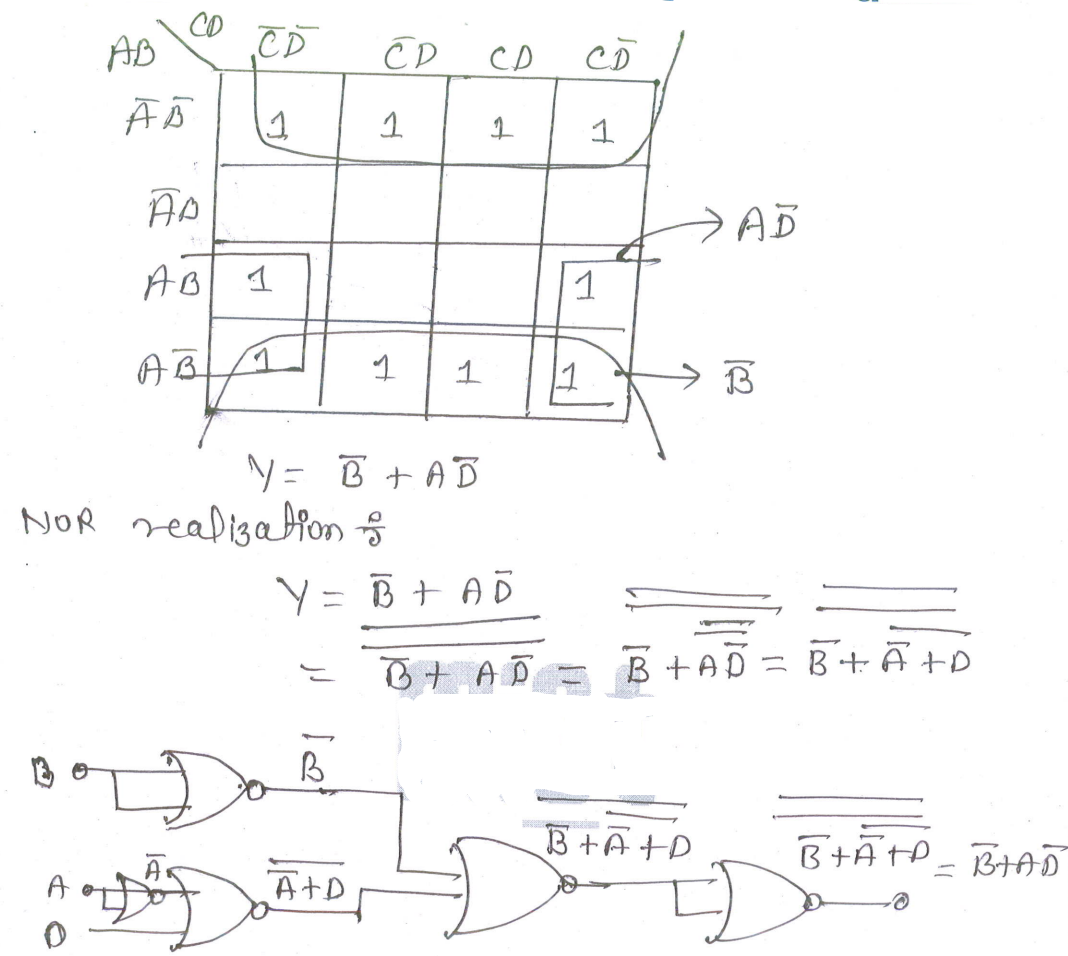 CD
AB C̅D̅ C̅D CD CD̅
A̅B̅ 1 1 1 1
A̅B
AD̅
AB 1 1
AB̅ 1 1 1 1 B̅
Y = B̅ + AD̅
NOR realization :
Y = B̅ + AD̅
= B̅ + AD̅ = B̅ + AD̅ = B̅ + A̅ + D
B B̅
B̅ + A̅ + D B̅ + A̅ + D = B̅ + AD̅
A A̅ A̅ + D
D